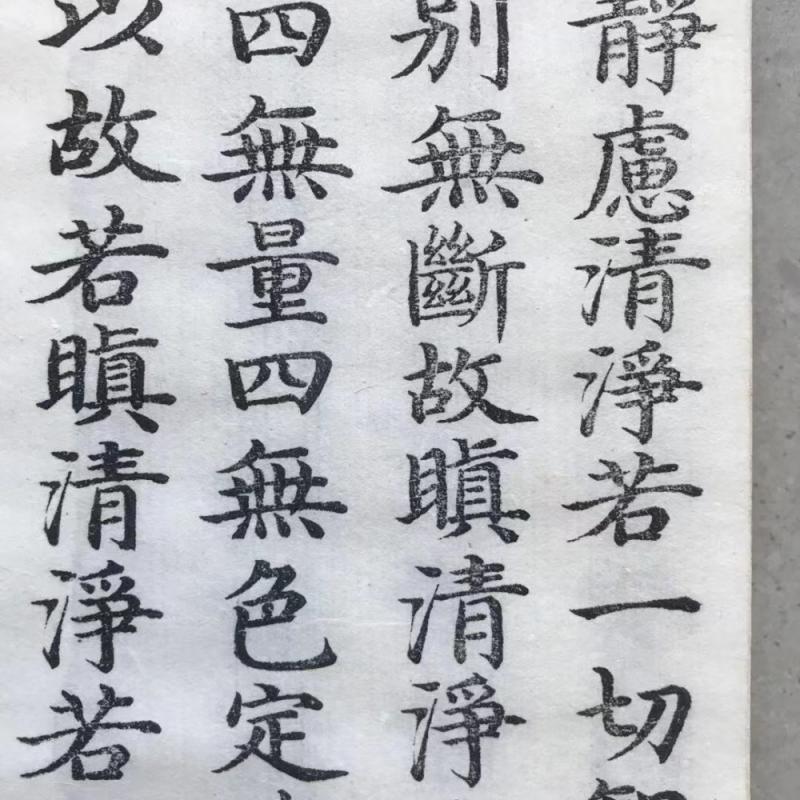 靜慮清淨若一切智
別無斷故瞋清淨
四無量四無色定
以故若瞋清淨若